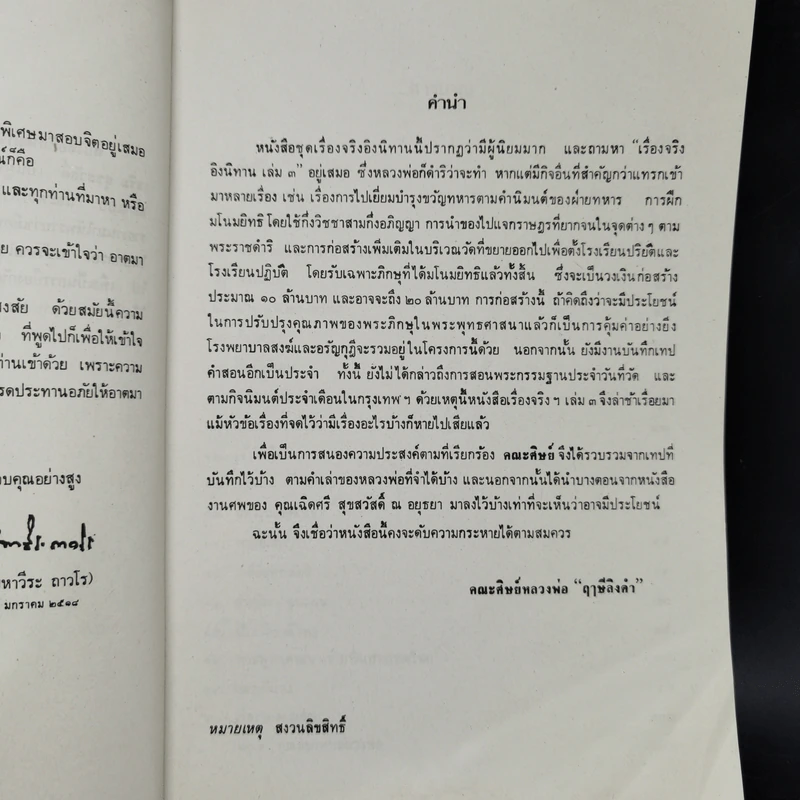 พิเศษมาสอบจิตอยู่เสมอ
นี้ก็คือ
และทุกท่านที่มาหา หรือ
ย ควรจะเข้าใจว่า อาตมา
งสงสัย ด้วยสมัยนี้ความ
ที่พูดไปก็เพื่อให้เข้าใจ
ท่านเข้าด้วย เพราะความ
รดประทานอภัยให้อาตมา
บคุณอย่างสูง
มหาวีระ ถาวโร)
มกราคม ๒๕๑๘
คำนำ
หนังสือชุดเรื่องจริงอิงนิทานนี้ปรากฏว่ามีผู้นิยมมาก และถามหา “เรื่องจริง
อิงนิทาน เล่ม ๓” อยู่เสมอ ซึ่งหลวงพ่อก็ดำริว่าจะทำ หากแต่มีกิจอื่นที่สำคัญกว่าแทรกเข้า
มาหลายเรื่อง เช่น เรื่องการไปเยี่ยมบำรุงขวัญทหารตามคำนิมนต์ของฝ่ายทหาร การฝึก
มโนมยิทธิ โดยใช้กึ่งวิชชาสามกึ่งอภิญญา การนำของไปแจกราษฎรที่ยากจนในจุดต่าง ๆ ตาม
พระราชดำริ และการก่อสร้างเพิ่มเติมในบริเวณวัดที่ขยายออกไปเพื่อตั้งโรงเรียนปริยัติและ
โรงเรียนปฏิบัติ โดยรับเฉพาะภิกษุที่ได้มโนมยิทธิแล้วทั้งสิ้น ซึ่งจะเป็นวงเงินก่อสร้าง
ประมาณ ๑๐ ล้านบาท และอาจจะถึง ๒๐ ล้านบาท การก่อสร้างนี้ ถ้าคิดถึงว่าจะมีประโยชน์
ในการปรับปรุงคุณภาพของพระภิกษุในพระพุทธศาสนาแล้วก็เป็นการคุ้มค่าอย่างยิ่ง
โรงพยาบาลสงฆ์และอรัญกุฏีจะรวมอยู่ในโครงการนี้ด้วย นอกจากนั้น ยังมีงานบันทึกเทป
คำสอนอีกเป็นประจำ ทั้งนี้ ยังไม่ได้กล่าวถึงการสอนพระกรรมฐานประจำวันที่วัด และ
ตามกิจนิมนต์ประจำเดือนในกรุงเทพ ฯ ด้วยเหตุนี้หนังสือเรื่องจริง ฯ เล่ม ๓ จึงล่าช้าเรื่อยมา
แม้หัวข้อเรื่องที่จดไว้ว่ามีเรื่องอะไรบ้างก็หายไปเสียแล้ว
เพื่อเป็นการสนองความประสงค์ตามที่เรียกร้อง คณะศิษย์ จึงได้รวบรวมจากเทปที่
บันทึกไว้บ้าง ตามคำเล่าของหลวงพ่อที่จำได้บ้าง และนอกจากนั้นได้นำบางตอนจากหนังสือ
งานศพของ คุณเฉิดศรี สุขสวัสดิ์ ณ อยุธยา มาลงไว้บ้างเท่าที่จะเห็นว่าอาจมีประโยชน์
ฉะนั้น จึงเชื่อว่าหนังสือนี้คงจะดับความกระหายได้ตามสมควร
คณะศิษย์หลวงพ่อ “ฤๅษีลิงดำ”
หมายเหตุ สงวนลิขสิทธิ์